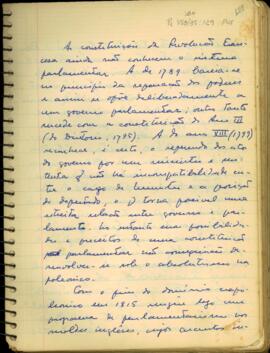 A constituição da Revolução Fran-
cesa ainda não conhecem o sistema
parlamentar. A de 1789. baseia-se
no princípio da separação dos poderes
e assim se opõe deliberadamente a
um governo parlamentar; outro tanto
sucede com a constituição do Ano III
(do Diretorio, 1795). A do ano VIII (1799)
reconhece, é certo, o segundo do ato
do governo por um ministro e
não há incompatibilidade
entre o cargo de Ministro e a posição
de deputado, o q torna possível uma
estreita relação entre governo e par-
lamento. No entanto essa possibilida-
de e preceitos de uma constituição
parlamentar não conseguiram de-
senvolver-se sob o absolutismo na-
poleonico.
Com o fim do dominio napo-
leonico em 1815 surgiu logo um
programa de parlamentarismo nos
moldes ingleses, cujos